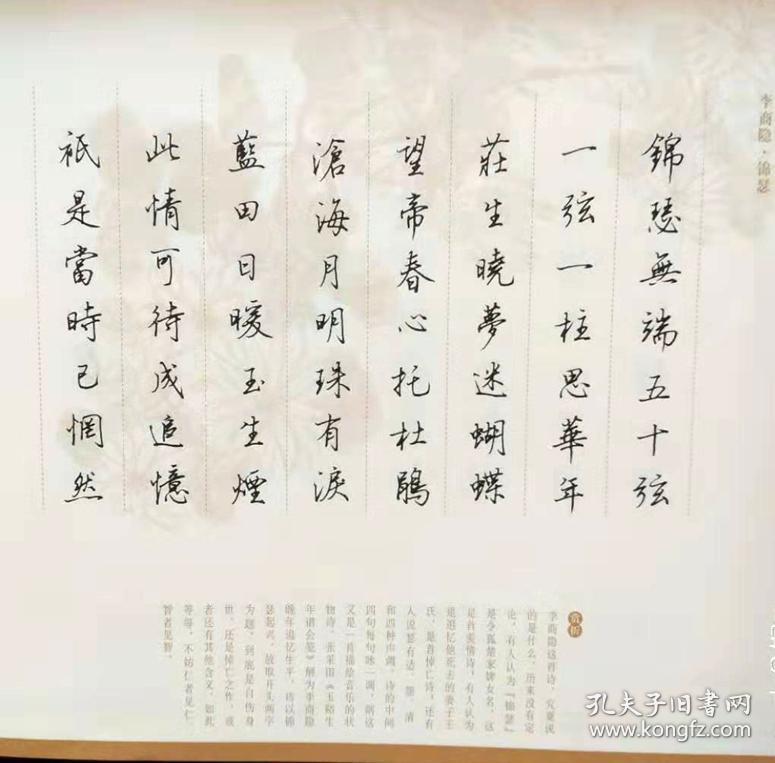 李商隐·锦瑟
錦瑟無端五十弦
一弦一柱思華年
莊生曉夢迷蝴蝶
望帝春心托杜鵑
滄海月明珠有淚
藍田日暖玉生煙
此情可待成追憶
祇是當時已惘然
赏析
李商隐这首诗，究竟说
的是什么，历来没有定
论。有人认为『锦瑟』
是令狐楚家婢女名，这
是首爱情诗，有人认为
是追忆他死去的妻子王
氏，是首悼亡诗，还有
人说瑟有适、怨、清、
和四种声调，诗的中间
四句每句咏一调，则这
又是一首描绘音乐的状
物诗。张采田《玉谿生
年谱会笺》解为李商隐
晚年追忆生平，诗以锦
瑟起兴，故取开头两字
为题。到底是自伤身
世，还是悼亡之作，或
者还有其他含义，如此
等等，不妨仁者见仁，
智者见智。
孔夫子旧书网
www.kongfz.com